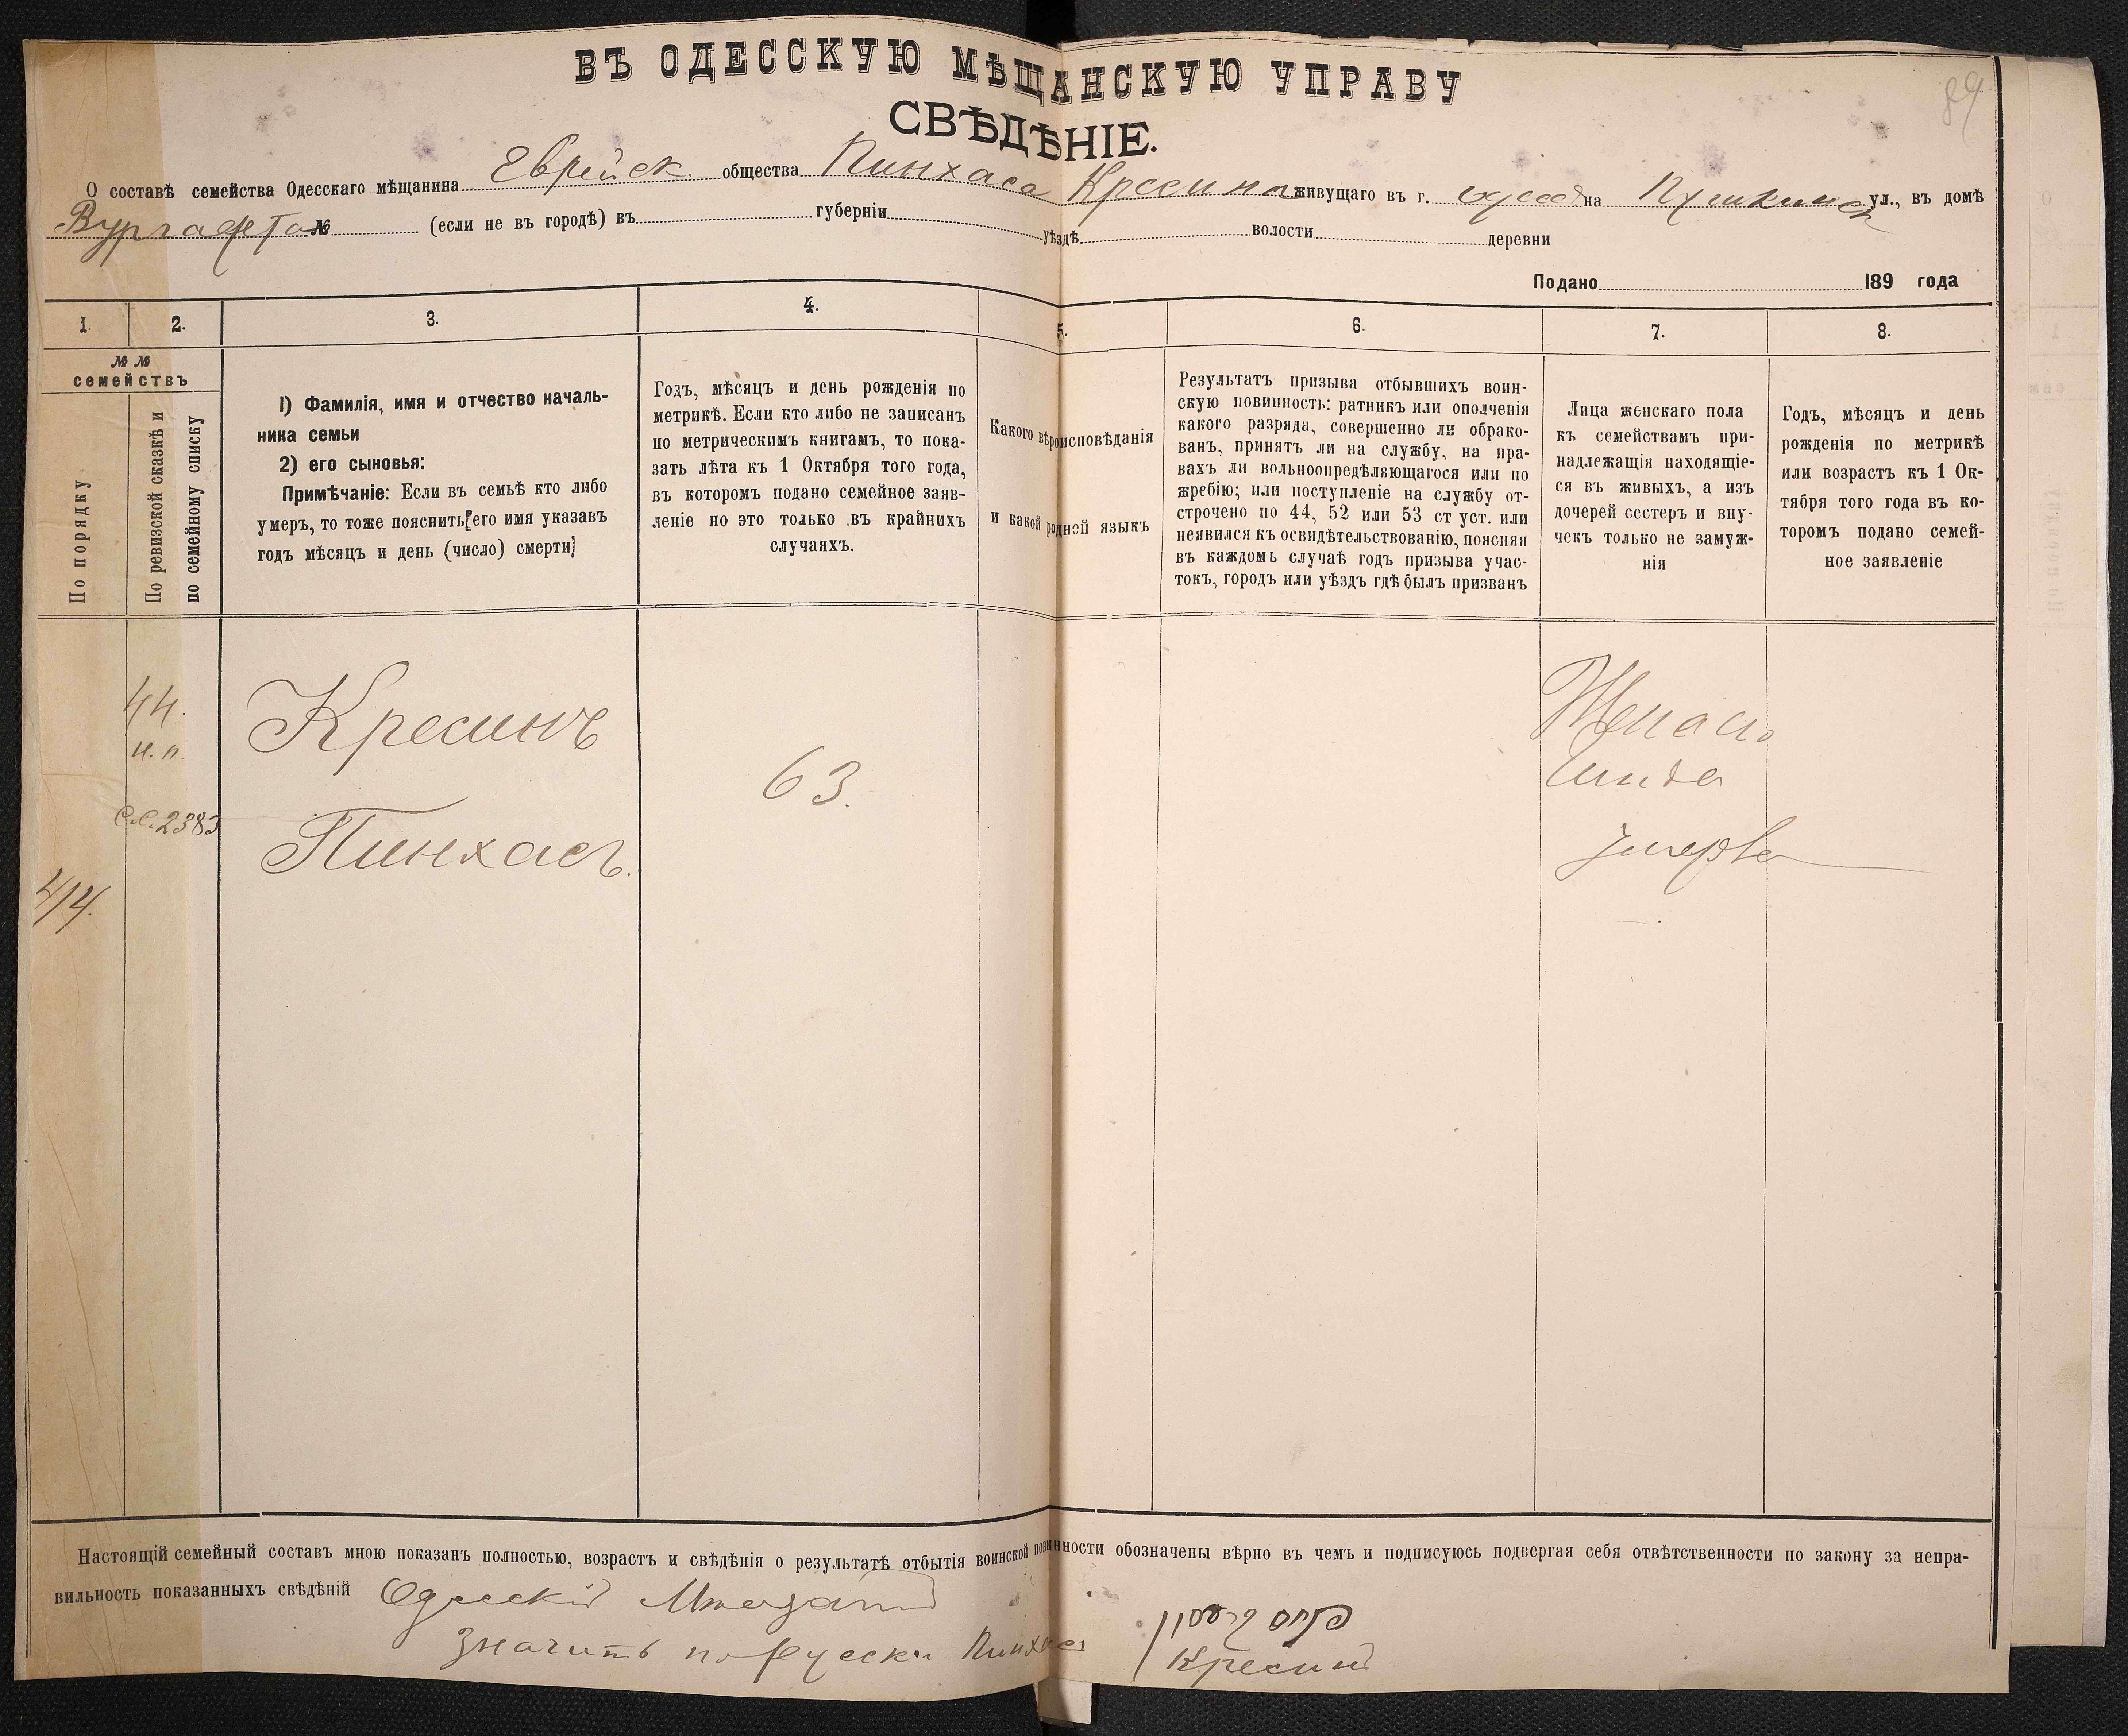 ВЪ ОДЕССКУЮ МѢЩАНСКУЮ УПРАВУ
СВѢДѢНІЕ.
89
О составѣ семейства Одесскаго мѣщанина Еврейск. общества Пинхаса Кресина живущаго въ г. на Пушкинск ул., въ домѣ
Вургафта № (если не въ городѣ) въ губерніи уѣздѣ волости деревни
Подано 189 года
1. 2. 3. 4. 5. 6. 7. 8.
№ № семействъ
По порядку
По ревизской сказкѣ и
по семейному списку
1) Фамилія, имя и отчество началь-
ника семьи
2) его сыновья:
Примѣчаніе: Если въ семьѣ кто либо
умеръ, то тоже пояснить[его имя указавъ
годъ мѣсяцъ и день (число) смерти]
Годъ, мѣсяцъ и день рожденія по
метрикѣ. Если кто либо не записанъ
по метрическимъ книгамъ, то пока-
зать лѣта къ 1 Октября того года,
въ которомъ подано семейное заяв-
леніе но это только въ крайнихъ
случаяхъ.
Какого вѣроисповѣданія
и какой родной языкъ
Результатъ призыва отбывшихъ воин-
скую повинность: ратникъ или ополченія
какого разряда, совершенно ли обрако-
ванъ, принятъ ли на службу, на пра-
вахъ ли вольноопредѣляющагося или по
жребію; или поступленіе на службу от-
строчено по 44, 52 или 53 ст уст. или
неявился къ освидѣтельствованію, поясняя
въ каждомъ случаѣ годъ призыва учас-
токъ, городъ или уѣздъ гдѣ былъ призванъ
Лица женскаго пола
къ семействамъ при-
надлежащія находящіе-
ся въ живыхъ, а изъ
дочерей сестеръ и вну-
чекъ только не замуж-
нія
Годъ, мѣсяцъ и день
рожденія по метрикѣ
или возрастъ къ 1 Ок-
тября того года въ ко-
торомъ подано семей-
ное заявленіе
44.
н. п.
с.с. 2383
414.
Кресинъ
Пинхасъ.
63.
Жена
умерла
Настоящій семейный составъ мною показанъ полностью, возрастъ и свѣдѣнія о результатѣ отбытія воинской повинности обозначены вѣрно въ чемъ и подписуюсь подвергая себя отвѣтственности по закону за непра-
вильность показанныхъ свѣдѣній Одесскій
значитъ по русски Пинхас Кресин